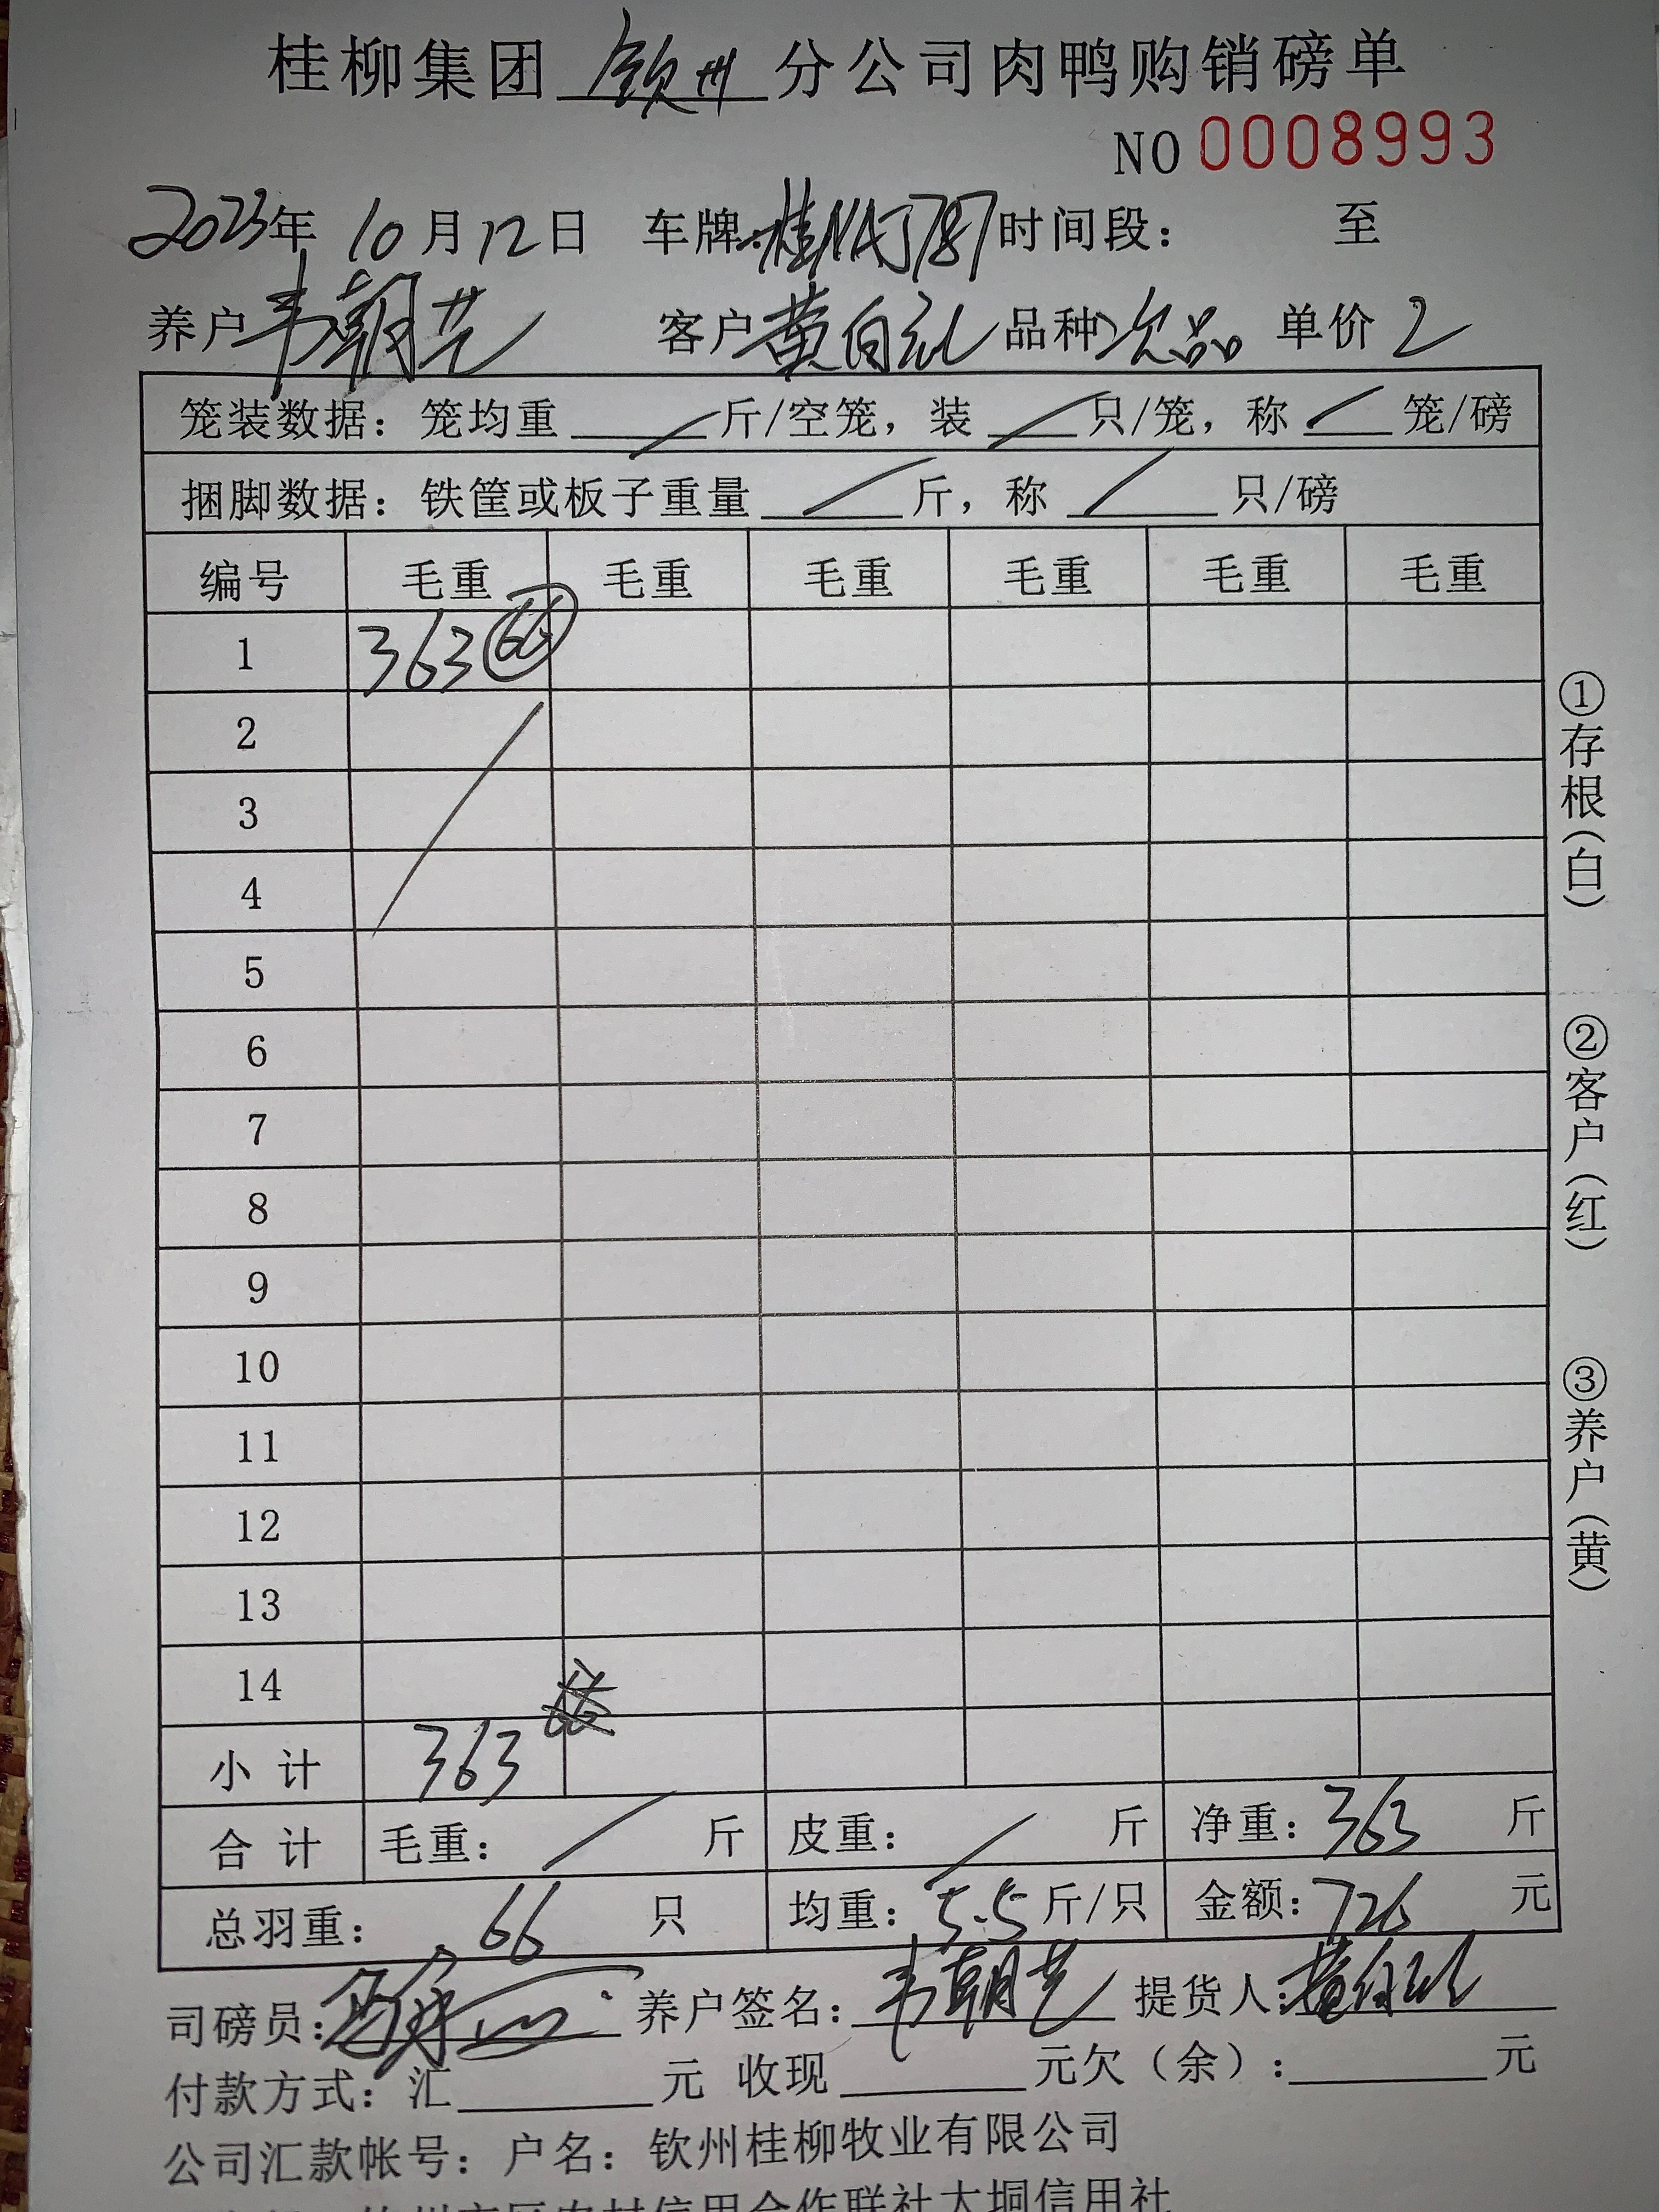 桂柳集团 钦州 分公司肉鸭购销磅单
NO 0008993
2023年 10月12日 车牌:桂NAJ787 时间段: 至
养户 韦朝艺 客户 黄白 品种 次品 单价 2
笼装数据: 笼均重 / 斤/空笼, 装 / 只/笼, 称 / 笼/磅
捆脚数据: 铁筐或板子重量 / 斤, 称 / 只/磅
编号 毛重 毛重 毛重 毛重 毛重 毛重
1 363 66
2
3
4
5
6
7
8
9
10
11
12
13
14
小计 363
合计 毛重: / 斤 皮重: / 斤 净重: 363 斤
总羽重: 66 只 均重: 5.5 斤/只 金额: 726 元
司磅员: 养户签名: 韦朝艺 提货人:
付款方式: 汇 元 收现 元欠(余): 元
公司汇款帐号: 户名: 钦州桂柳牧业有限公司
钦州市区农村信用合作联社大垌信用社
①存根(白)
②客户(红)
③养户(黄)